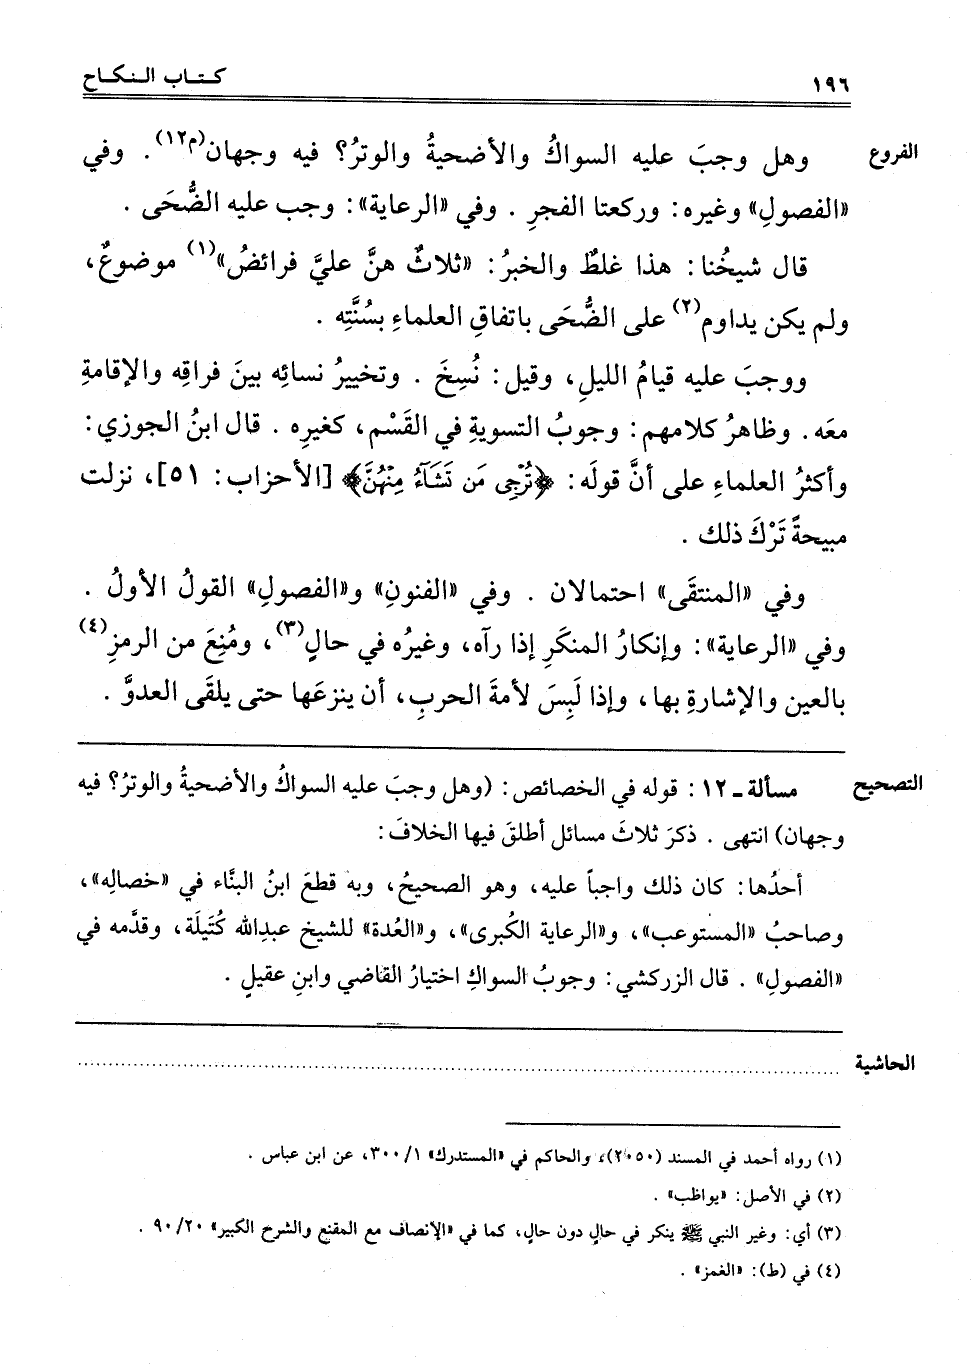 ١٩٦ كتاب النكاح
الفروع وهل وجبَ عليه السواكُ والأضحيةُ والوترُ؟ فيه وجهان(م١٢) . وفي
«الفصولِ» وغيره: وركعتا الفجرِ . وفي «الرعاية»: وجب عليه الضُّحَى .
قال شيخُنا: هذا غلطٌ والخبرُ: «ثلاثٌ هنَّ عليَّ فرائضُ»(١) موضوعٌ،
ولم يكن يداوم(٢) على الضُّحَى باتفاقِ العلماءِ بسُنَّتِه .
ووجبَ عليه قيامُ الليلِ، وقيل: نُسِخَ . وتخييرُ نسائِه بينَ فراقِه والإقامةِ
معَه. وظاهرُ كلامهم: وجوبُ التسويةِ في القَسْم، كغيرِه . قال ابنُ الجوزي:
وأكثرُ العلماءِ على أنَّ قولَه: ﴿تُرْجِى مَن تَشَآءُ مِنْهُنَّ﴾ [الأحزاب: ٥١]، نزلت
مبيحةً تَرْكَ ذلك .
وفي «المنتقَى» احتمالان . وفي «الفنونِ» و«الفصولِ» القولُ الأولُ .
وفي «الرعاية»: وإنكارُ المنكَرِ إذا رآه، وغيرُه في حالٍ(٣)، ومُنِعَ من الرمزِ(٤)
بالعين والإشارةِ بها، وإذا لَبِسَ لأمةَ الحربِ، أن ينزعَها حتى يلقَى العدوَّ .
التصحيح مسألة ـ ١٢: قوله في الخصائص: (وهل وجبَ عليه السواكُ والأضحيةُ والوترُ؟ فيه
وجهان) انتهى . ذكرَ ثلاثَ مسائل أطلقَ فيها الخلافَ:
أحدُها: كان ذلك واجباً عليه، وهو الصحيحُ، وبه قطعَ ابنُ البنَّاء في «خصالِه»،
وصاحبُ «المستوعب»، و«الرعاية الكبرى»، و«العُدة» للشيخ عبدِالله كُتَيلَة، وقدَّمه في
«الفصولِ» . قال الزركشي: وجوبُ السواكِ اختيارُ القاضي وابنِ عقيلٍ .
الحاشية ........................................................................
(١) رواه أحمد في المسند (٢٠٥٠)، والحاكم في «المستدرك» ٣٠٠/١، عن ابن عباس .
(٢) في الأصل: «يواظب» .
(٣) أي: وغير النبي ﷺ ينكر في حالٍ دون حال، كما في «الإنصاف مع المقنع والشرح الكبير» ٩٠/٢٠ .
(٤) في (ط): «الغمز» .